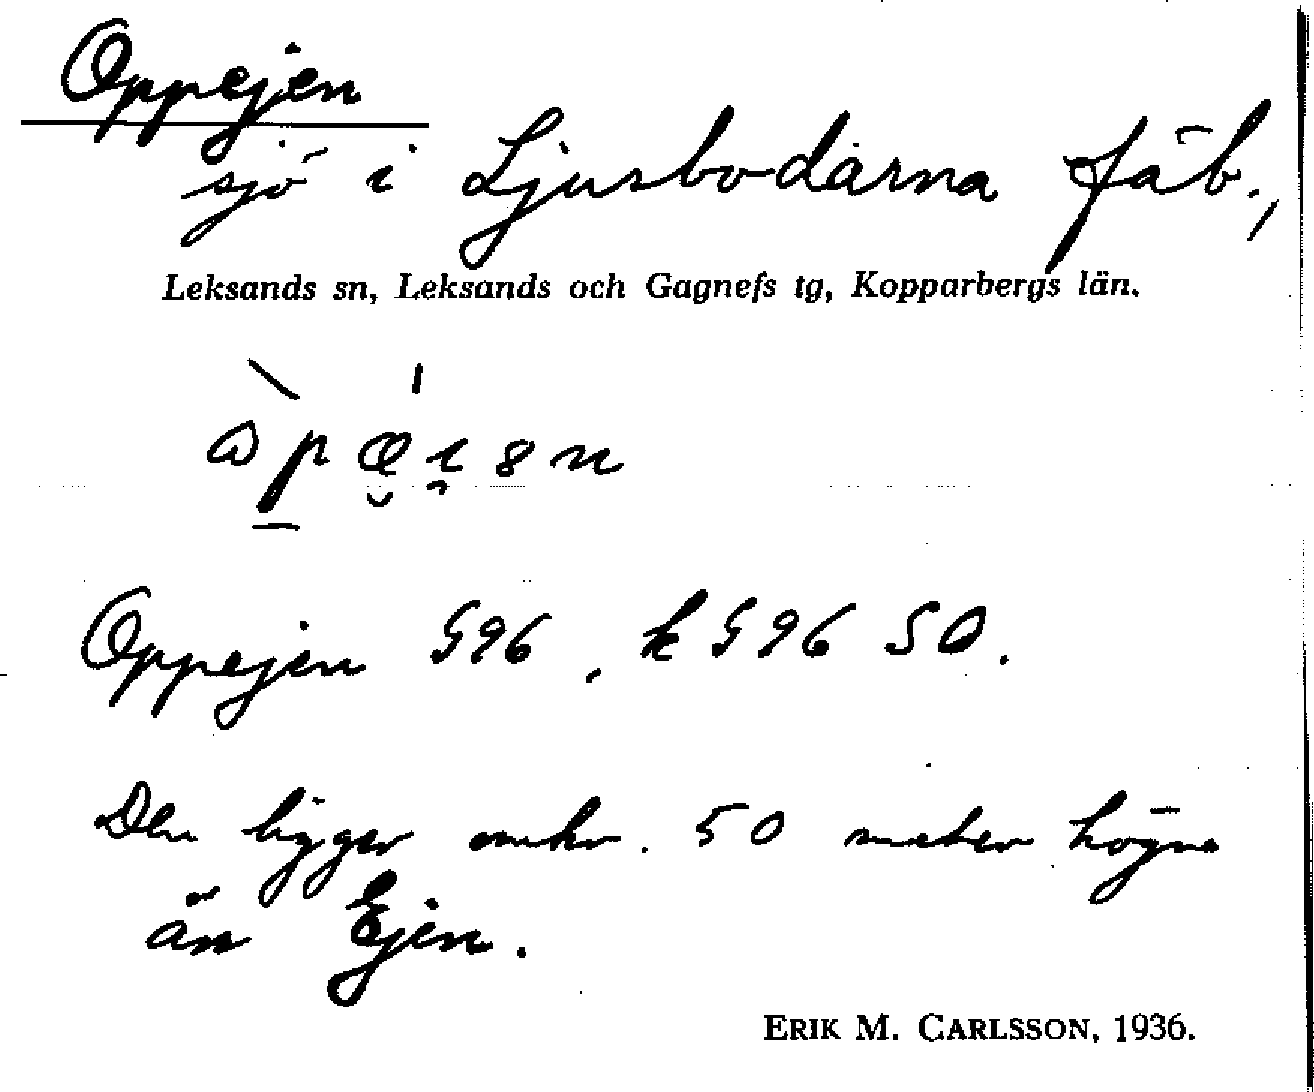 Oppejen
sjö i Ljusbodarna fäb.,
Leksands sn, Leksands och Gagnefs tg, Kopparbergs län.
Oppejen G96, k G96 SO.
Den ligger omkr. 50 meter högre
än Ejen.
ERIK M. CARLSSON, 1936.